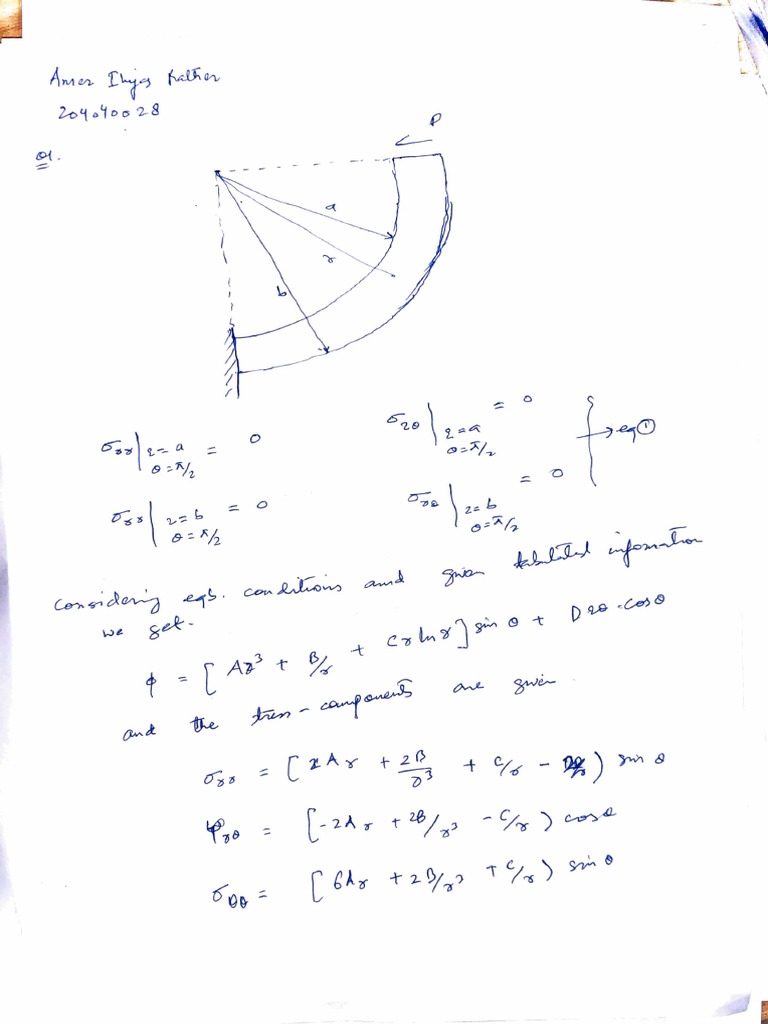 204040028
Q1.
P
a
r
b
σrr | r=a θ=π/2 = 0
σrθ | r=a θ=π/2 = 0
→ eq ①
σrr | r=b θ=π/2 = 0
σrθ | r=b θ=π/2 = 0
Considering eqb. conditions and given tabulated information
we get.
φ = [Ar³ + B/r + Cr ln r] sin θ + Drθ·cosθ
and the stress-components are given.
σrr = [2Ar + 2B/r³ + C/r -) sin θ
rθ = [-2Ar + 2B/r³ - C/r) cosθ
σθθ = [6Ar + 2B/r³ + C/r) sin θ